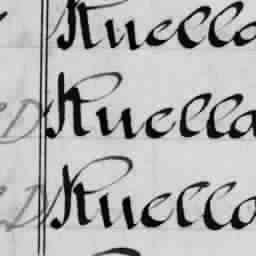 Kuella
Kuella
Kuella